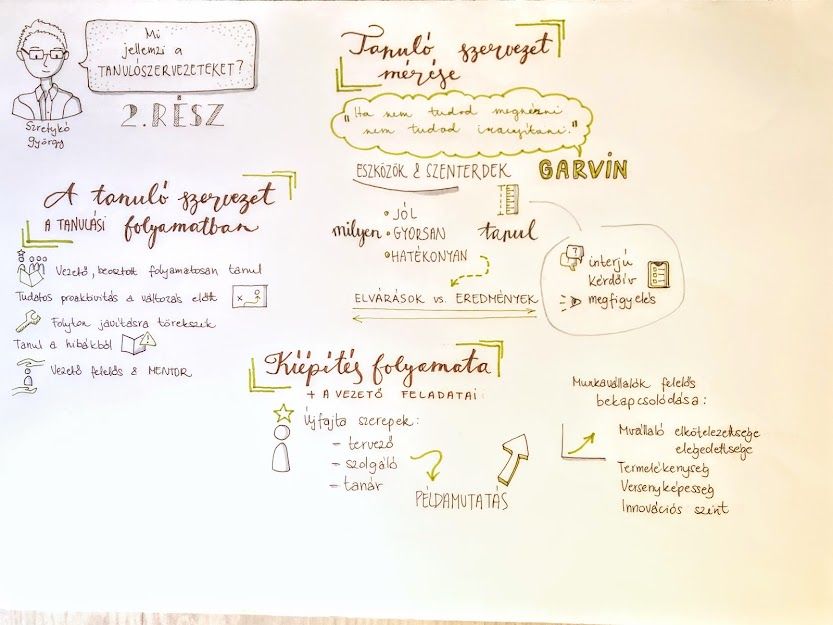 Mi
jellemzi a
TANULÓSZERVEZETEKET?
2. RÉSZ
Szretykó
György
A tanuló szervezet
A TANULÁSI folyamatban
Vezető, beosztott folyamatosan tanul
Tudatos proaktivitás a változás előtt
Folyton javításra törekszik
Tanul a hibákból
Vezető felelős & MENTOR
Tanuló szervezet
mérése
"Ha nem tudod megnézni
nem tudod irányítani."
GARVIN
ESZKÖZÖK & SZENTERDEK
milyen
• JÓL
• GYORSAN
• HATÉKONYAN
tanul
ELVÁRÁSOK vs. EREDMÉNYEK
?
interjú
kérdőív
megfigyelés
Kiépítés folyamata
+ A VEZETŐ FELADATAI:
Újfajta szerepek:
- tervező
- szolgáló
- tanár
PÉLDAMUTATÁS
Munkavállalók felelős
bekapcsolódása:
Mvállaló elkötelezettsége
elégedettsége
Termelékenység
Versenyképesség
Innovációs szint